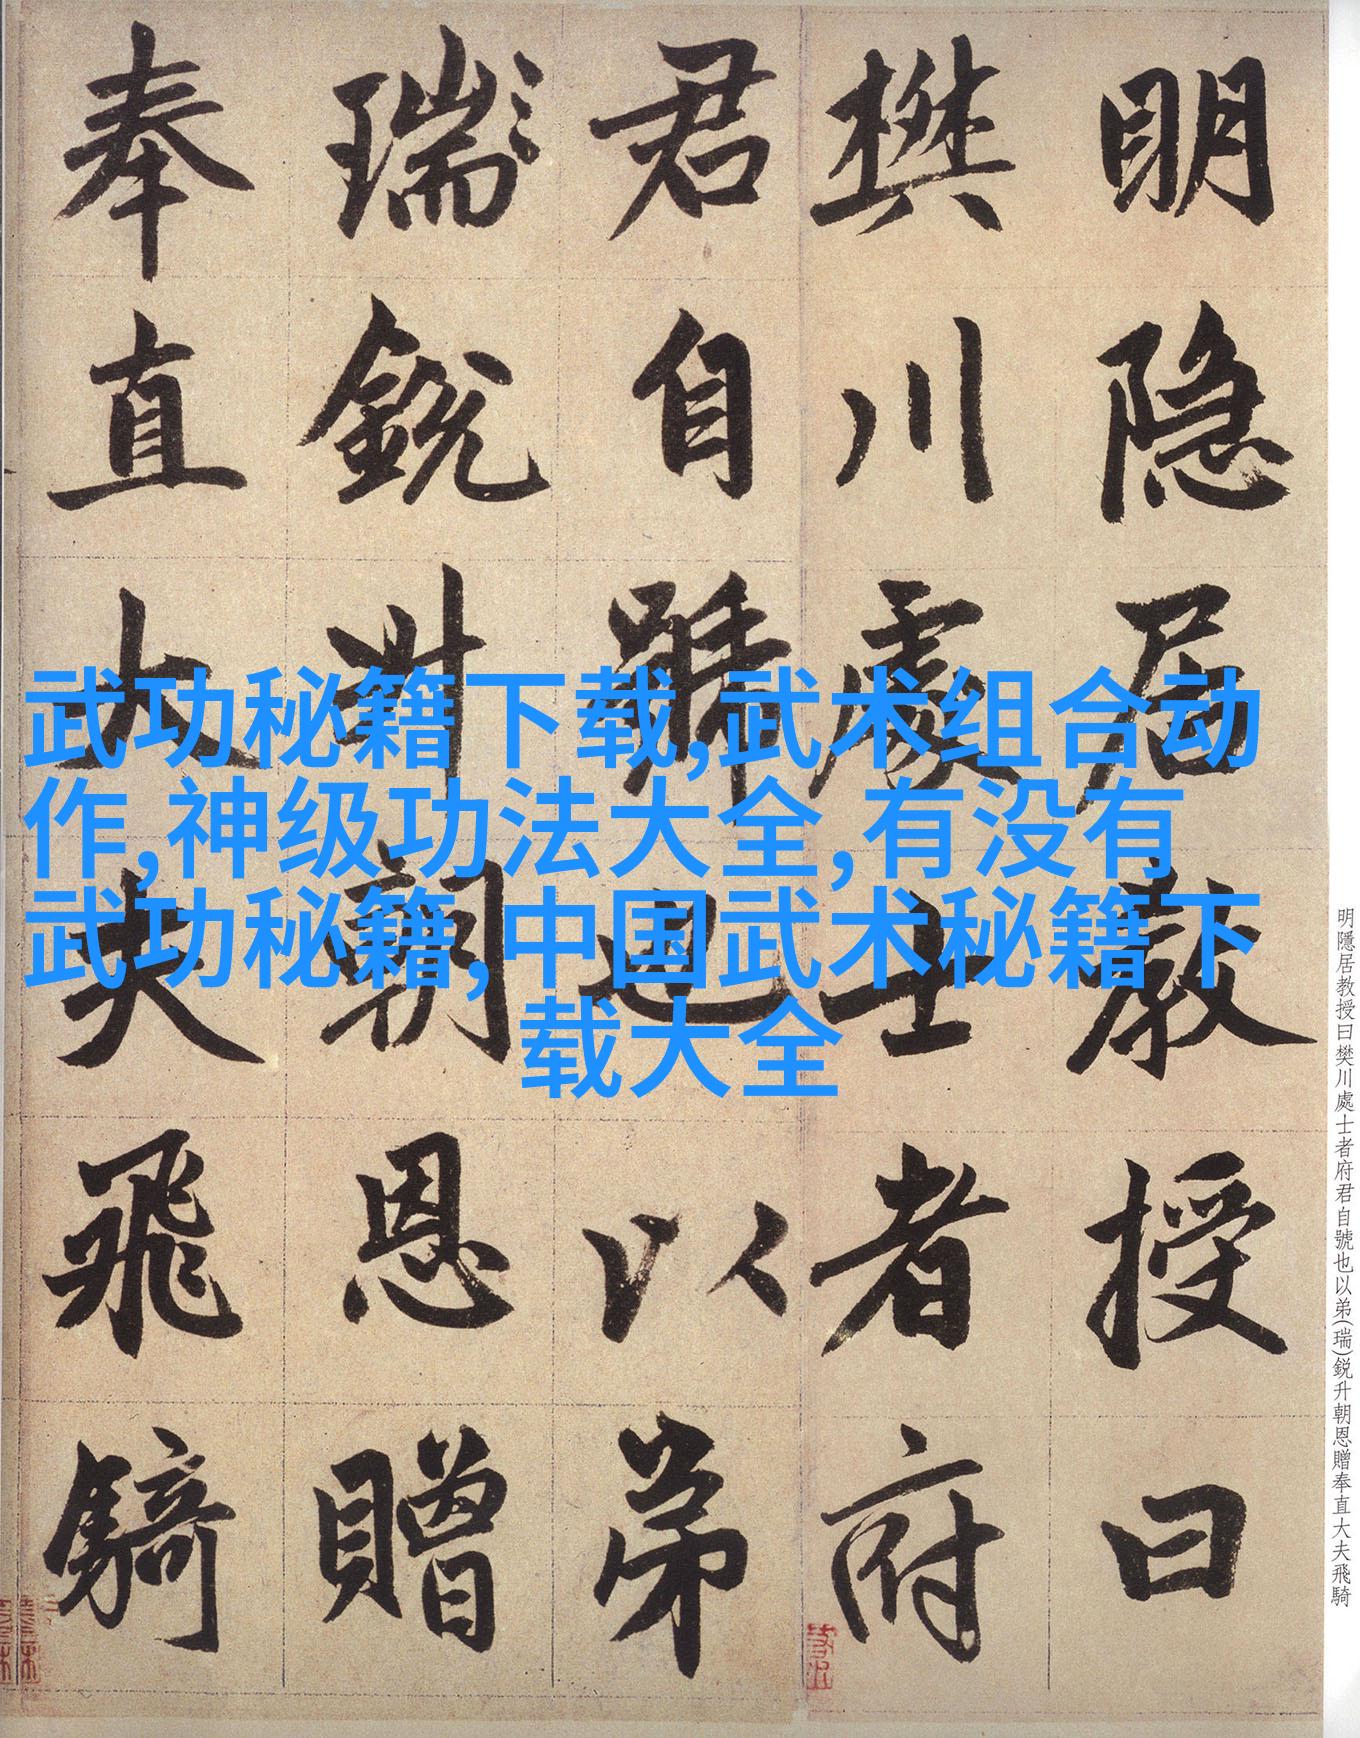 明隐居教授曰
樊川處士者府
君自號也以弟
瑞銳升朝恩贈
奉直大夫飛騎
武功秘籍下载,武术组合动
作,神级功法大全,有没有
武功秘籍,中国武术秘籍下
载大全
明隱居教授曰樊川處士者府君自號也以弟(瑞)鋭升朝恩贈奉直大夫飛騎